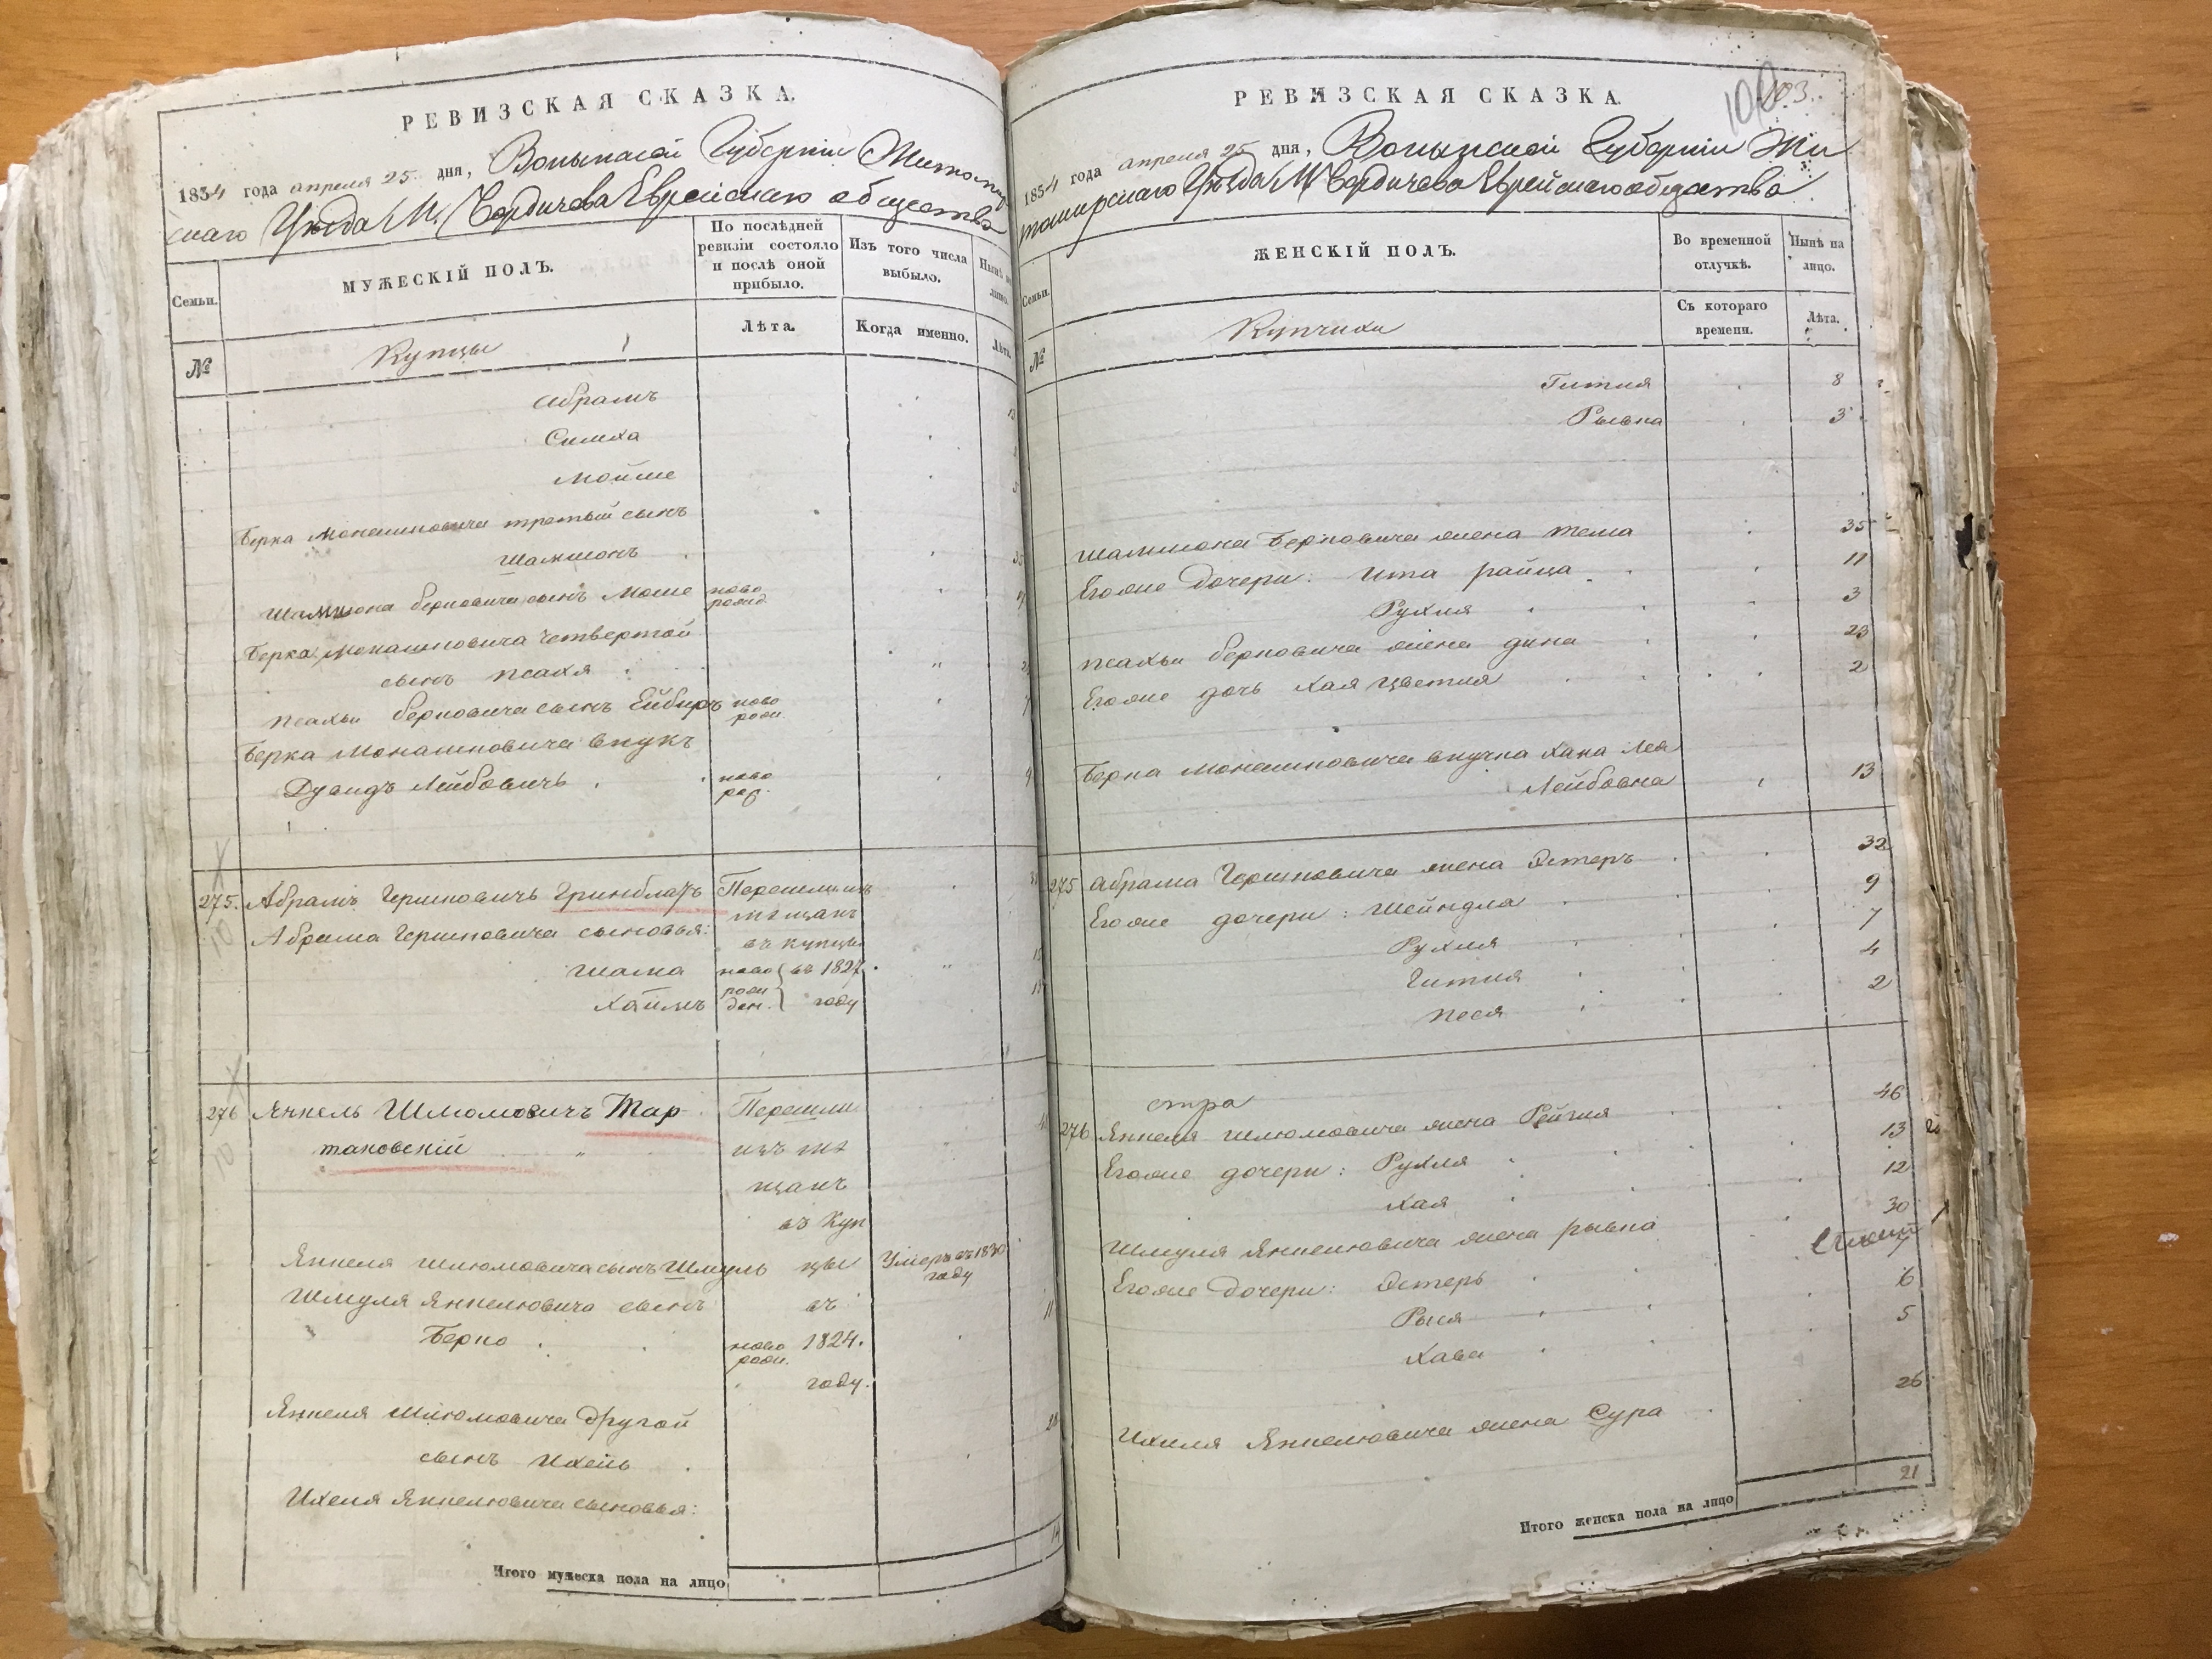 РЕВИЗСКАЯ СКАЗКА.
1834 года апреля 25 дня, Волынской Губерніи Житомир
скаго Уѣзда М. Бердичева Еврейскаго общества
Семьи.
МУЖЕСКІЙ ПОЛЪ.
По послѣдней ревизіи состояло и послѣ оной прибыло.
Изъ того числа выбыло.
Нынѣ на лицо.
№
Купцы
Лѣта.
Когда именно.
Лѣта.
Абрамъ
Симха
Мойше
Берка Монашковича третьый сынъ
Шамшонъ
Шамшона Берковича сынъ Моше ново рожд.
Берка Монашковича четвертой
сынъ Псахя
Псахьи Берковича сынъ Ейберъ ново рож.
Берка Монашковича внукъ
Дувидъ Лейбовичъ ново рож.
275. Абрамъ Гершковичъ Гринблатъ Перешли изъ
мѣщанъ
Абрама Гершковича сыновья: въ купцы
Шама ново въ 1827
Хаимъ рож ден. году
276 Янкель Шлюмовичъ Тар Перешли
таковскій изъ мѣ
щанъ
въ Куп
Янкеля Шлюмовича сынъ Шмуль цы Умеръ въ 1830 году
Шмуля Янкелювича сынъ въ
Берко ново рож. 1824.
году.
Янкеля Шлюмовича другой
сынъ Ихель
Ихеля Янкелювича сыновья:
Итого мужеска пола на лицо
РЕВИЗСКАЯ СКАЗКА.
103.
1834 года апреля 25 дня, Волынской Губерніи Жи
томирскаго Уѣзда М. Бердичева Еврейскаго общества
Семьи.
ЖЕНСКІЙ ПОЛЪ.
Во временной отлучкѣ.
Нынѣ на лицо.
№
Купчихи
Съ котораго времени.
Лѣта.
Гитля 8
Рывка 3
Шамшона Берковича жена Тема 35
Егоже дочери: Ита Райца 11
Рухля 3
Псахьи Берковича жена Дина 23
Егоже дочь Хая Цветля 2
Берка Монашковича внучка Хана Лея
Лейбовна 13
275 Абрама Гершковича жена Эстеръ 32
Егоже дочери: Шейндля 9
Рухля 7
Гитля 4
Песя 2
276 Янкеля Шлюмовича жена Рейзля 46
Егоже дочери: Рухля 13
Хая 12
Шмуля Янкелювича жена Рывка 30
Егоже дочери: Эстеръ 7
Рыся 6
Хава 5
Ихиля Янкелювича жена Сура 26
Итого женска пола на лицо 21